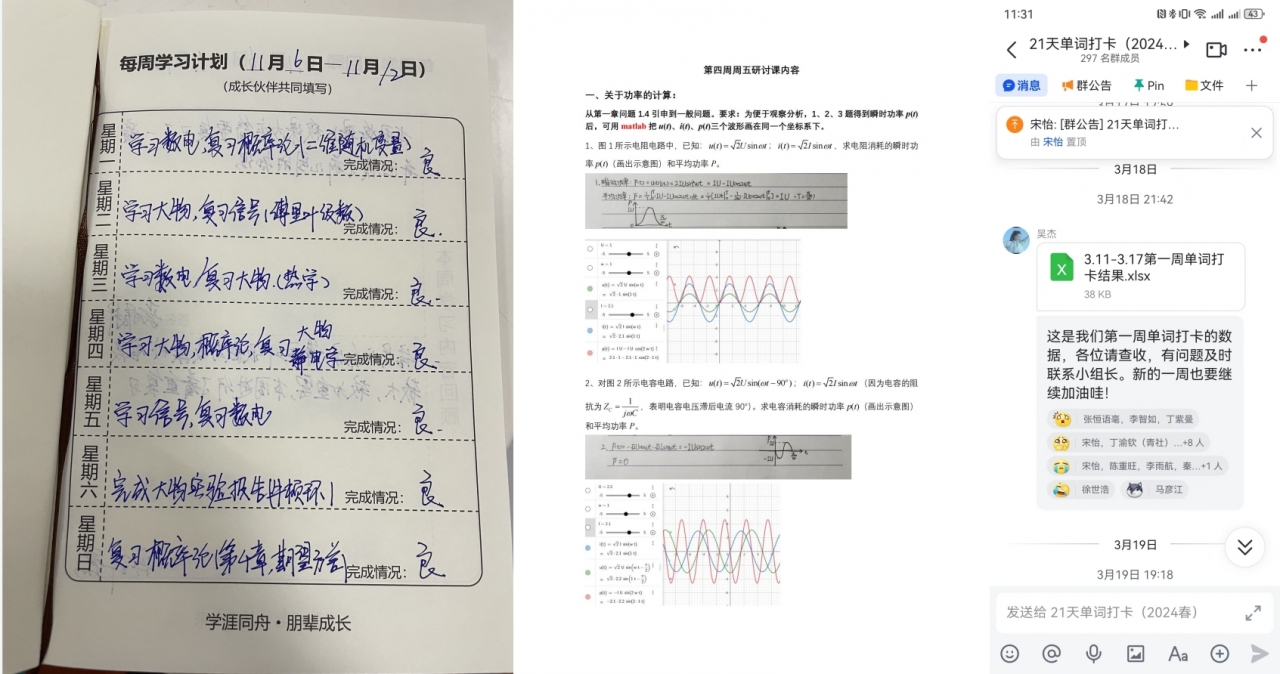 每周学习计划（11月6日—11月12日）
（成长伙伴共同填写）
星期一 学习数电,复习概率论(二维随机变量)
完成情况：良
星期二 学习大物,复习信号(傅里叶级数)
完成情况：良.
星期三 学习数电,复习大物.(热学)
完成情况：良.
星期四 学习大物,概率论,复习大物
静电学
完成情况：良.
星期五 学习信号,复习数电
完成情况：良
星期六 完成大物实验报告件
完成情况：良
星期日 复习概率论(第4章,期望方差)
完成情况：良
学涯同舟·朋辈成长
第四周周五研讨课内容
一、关于功率的计算：
从第一章问题 1.4 引申到一般问题。要求：为便于观察分析，1、2、3 题得到瞬时功率 p(t)
后，可用 matlab 把 u(t)、i(t)、p(t)三个波形画在同一个坐标系下。
1、图 1 所示电阻电路中，已知：u(t)=√2Usinωt；i(t)=√2Isinωt，求电阻消耗的瞬时功
率 p(t)（画出示意图）和平均功率 P。
2、对图 2 所示电容电路，已知：u(t)=√2Usin(ωt−90°)；i(t)=√2Isinωt（因为电容的阻
抗为 Z_C=1/jωC，表明电容电压滞后电流 90°）。求电容消耗的瞬时功率 p(t)（画出示意图）
和平均功率 P。
11:31
43
21天单词打卡（2024...
297 名群成员
消息 群公告 Pin 文件
宋怡: [群公告] 21天单词打...
由 宋怡 置顶
3月18日
3月18日 21:42
吴杰
3.11-3.17第一周单词打
卡结果.xlsx
38 KB
这是我们第一周单词打卡的数
据，各位请查收，有问题及时
联系小组长。新的一周也要继
续加油哇！
张恒语亳，李智如，丁紫曼
宋怡，丁渝钦（青社）...+8 人
宋怡，陈重旺，李雨航，秦...+1 人
徐世浩 马彦江
3月19日
3月19日 19:18
发送给 21天单词打卡（2024春）
Aa